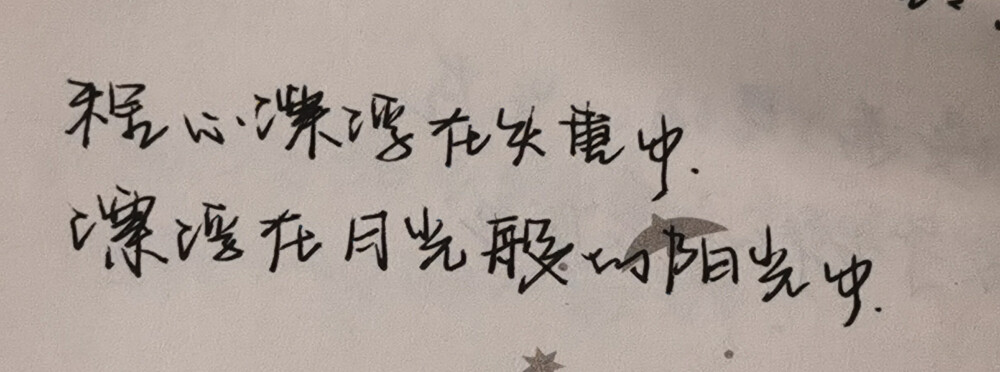 程心漂浮在失重中.
漂浮在月光般的阳光中.